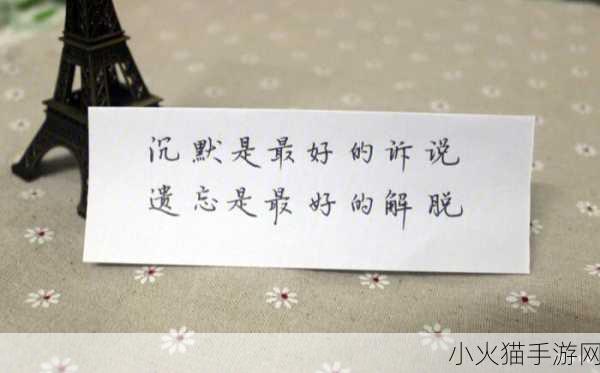 沉默是最好的诉说
遗忘是最好的解脱
小火猫手游网